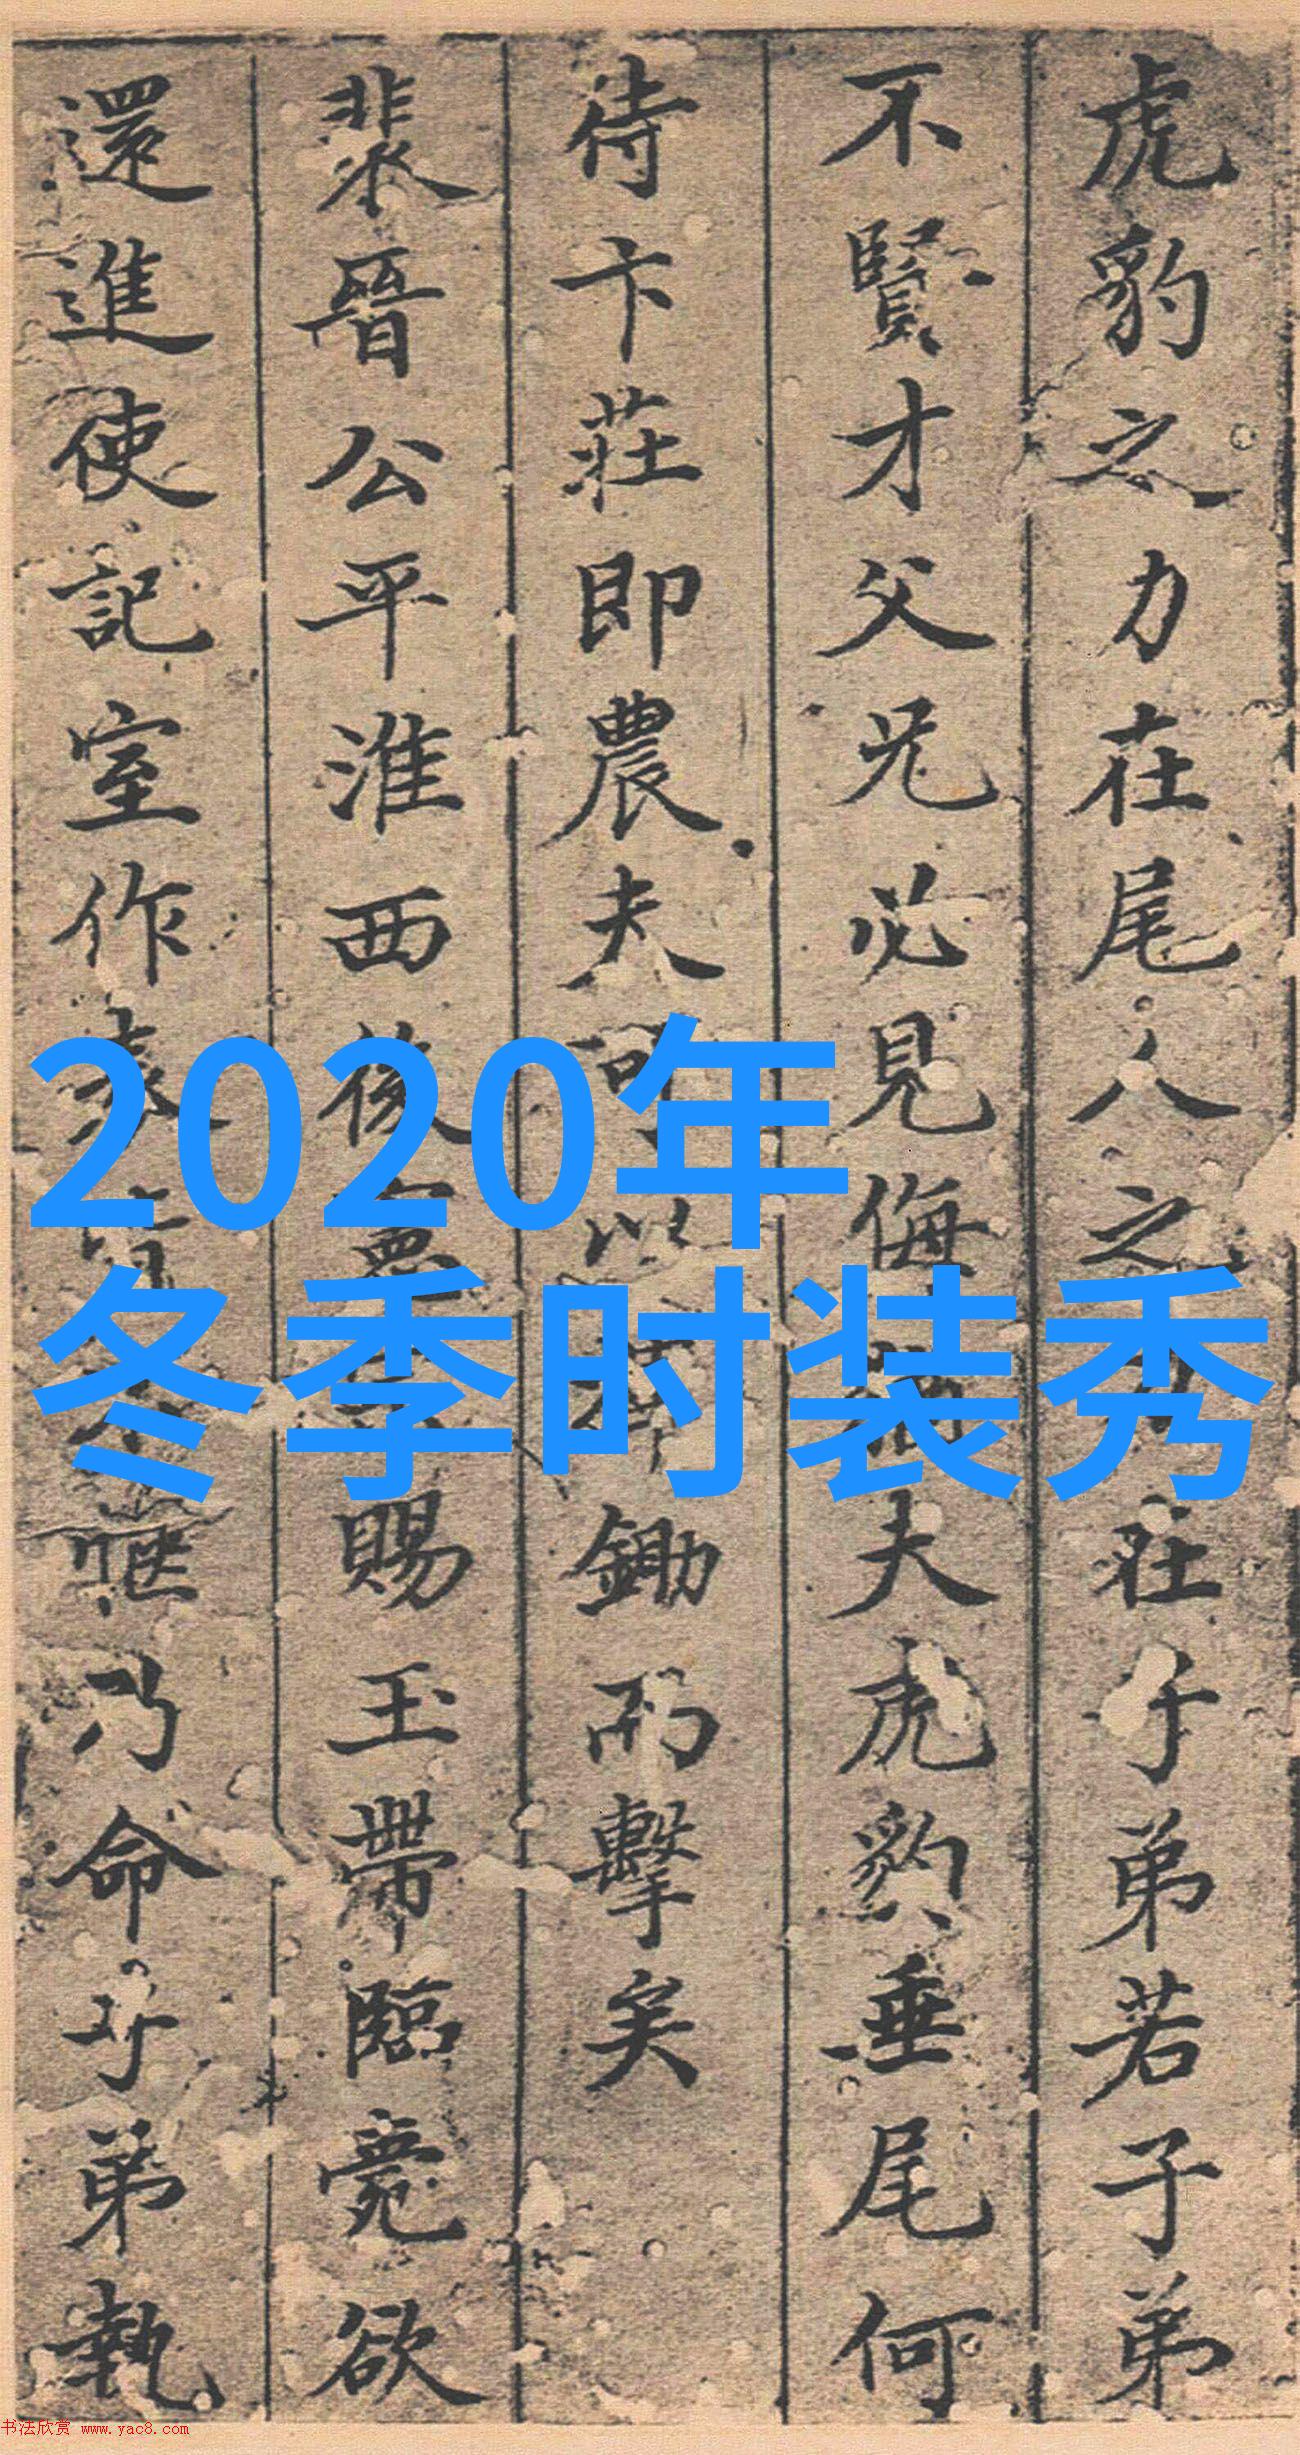 虎豹之力在尾人之力在子弟若子弟
不賢才父兄必見侮夫虎豹垂尾何
待卞莊即農夫可以荷鋤而擊矣
裴晉公平淮西後憲宗賜玉帶臨薨欲
還進使記室作表皆不愜乃命子弟執
2020年
冬季时装秀
书法欣赏 www.yac8.com